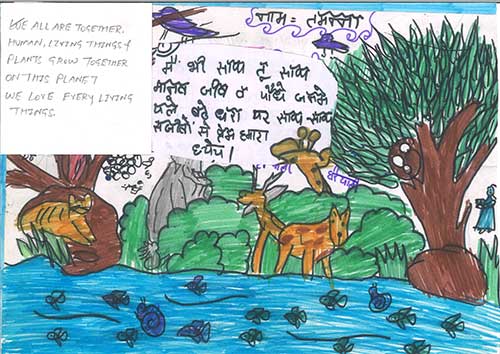 WE ALL ARE TOGETHER.
HUMAN, LIVING THINGS &
PLANTS GROW TOGETHER
ON THIS PLANET
WE LOVE EVERY LIVING
THINGS.
नाम = तमन्ना
मैं भी साथ तू साथ
मानव जीव व पौधे जन्मे
पले, बढ़े धरा पर साथ साथ
सजीवों से प्रेम हमारा
ध्येय।